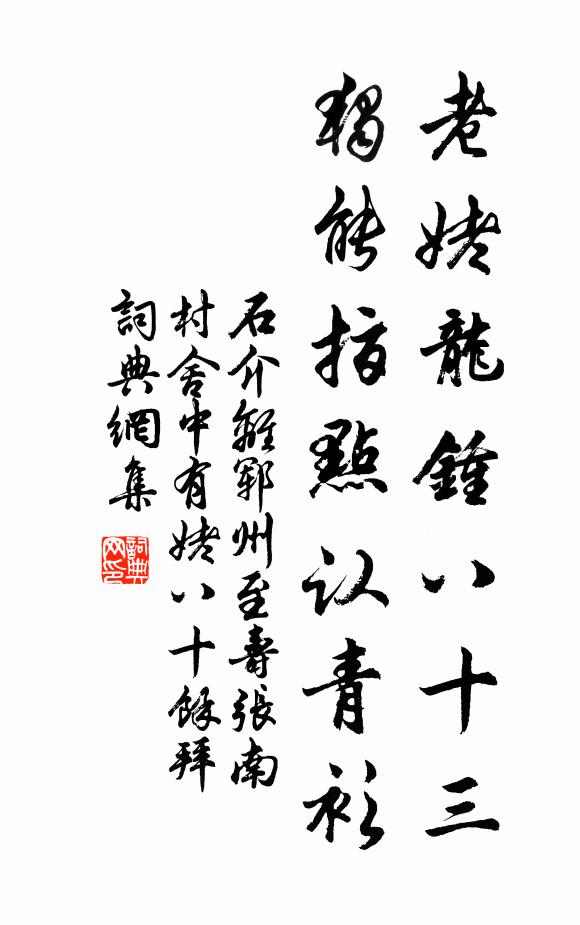 老姥龍鍾八十三
獨能指點認青衫
石介離鄆州至壽張南
村舍中有姥八十餘拜
詞典網集
詞典網印